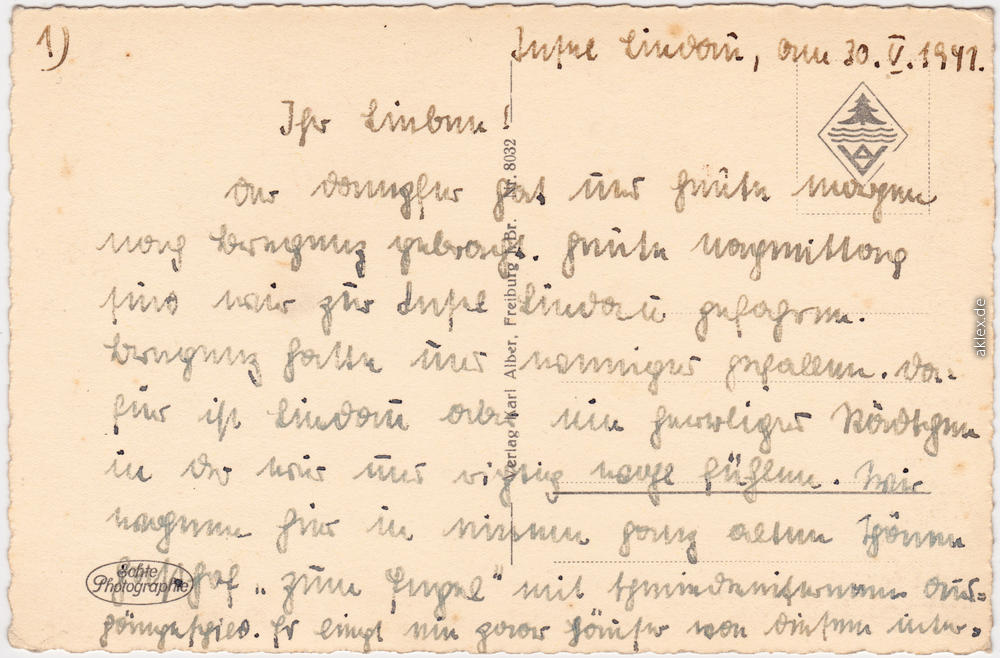 1)
Insel Lindau, am 30. V. 1941.
Ihr Lieben!
Der Dampfer hat uns heute morgen
nach Bregenz gebracht. Heute Nachmittag
sind wir zur Insel Lindau gefahren.
Bregenz hatte uns weniger gefallen. Da-
für ist Lindau aber ein herrliches Städtchen
in der wir uns richtig wohl fühlen. Wir
wohnen hier in einem ganz alten schönen
Gasthof „zum Engel“ mit schmiedeeisernem Aus-
hängeschild. Er liegt ein paar Häuser von diesem unter-
Verlag Karl Alber, Freiburg i. Br. Nr. 8032
Echte
Photographie
aklex.de